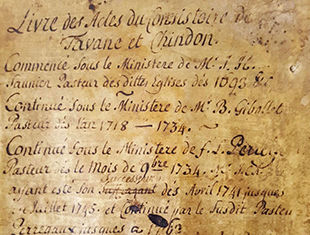 Livre des Actes du Consistoire de
Tavane et Chindon.
Commencé Sous le Ministere de Mr. J. H.
Saunier Pasteur desdittes Eglises dès 1693
Continué Sous le Ministere de Mr. B. Gibollet
Pasteur dès l'an 1718 — 1734.
Continué Sous le Ministere de f. L. Perre
Pasteur dès le Mois de 9bre 1734.
successeur
ayant esté son Suffragant dès Avril 1741 jusques
Juillet 1745. et Continué par le Susdit Pasteu
Perregaux jusques à 1763